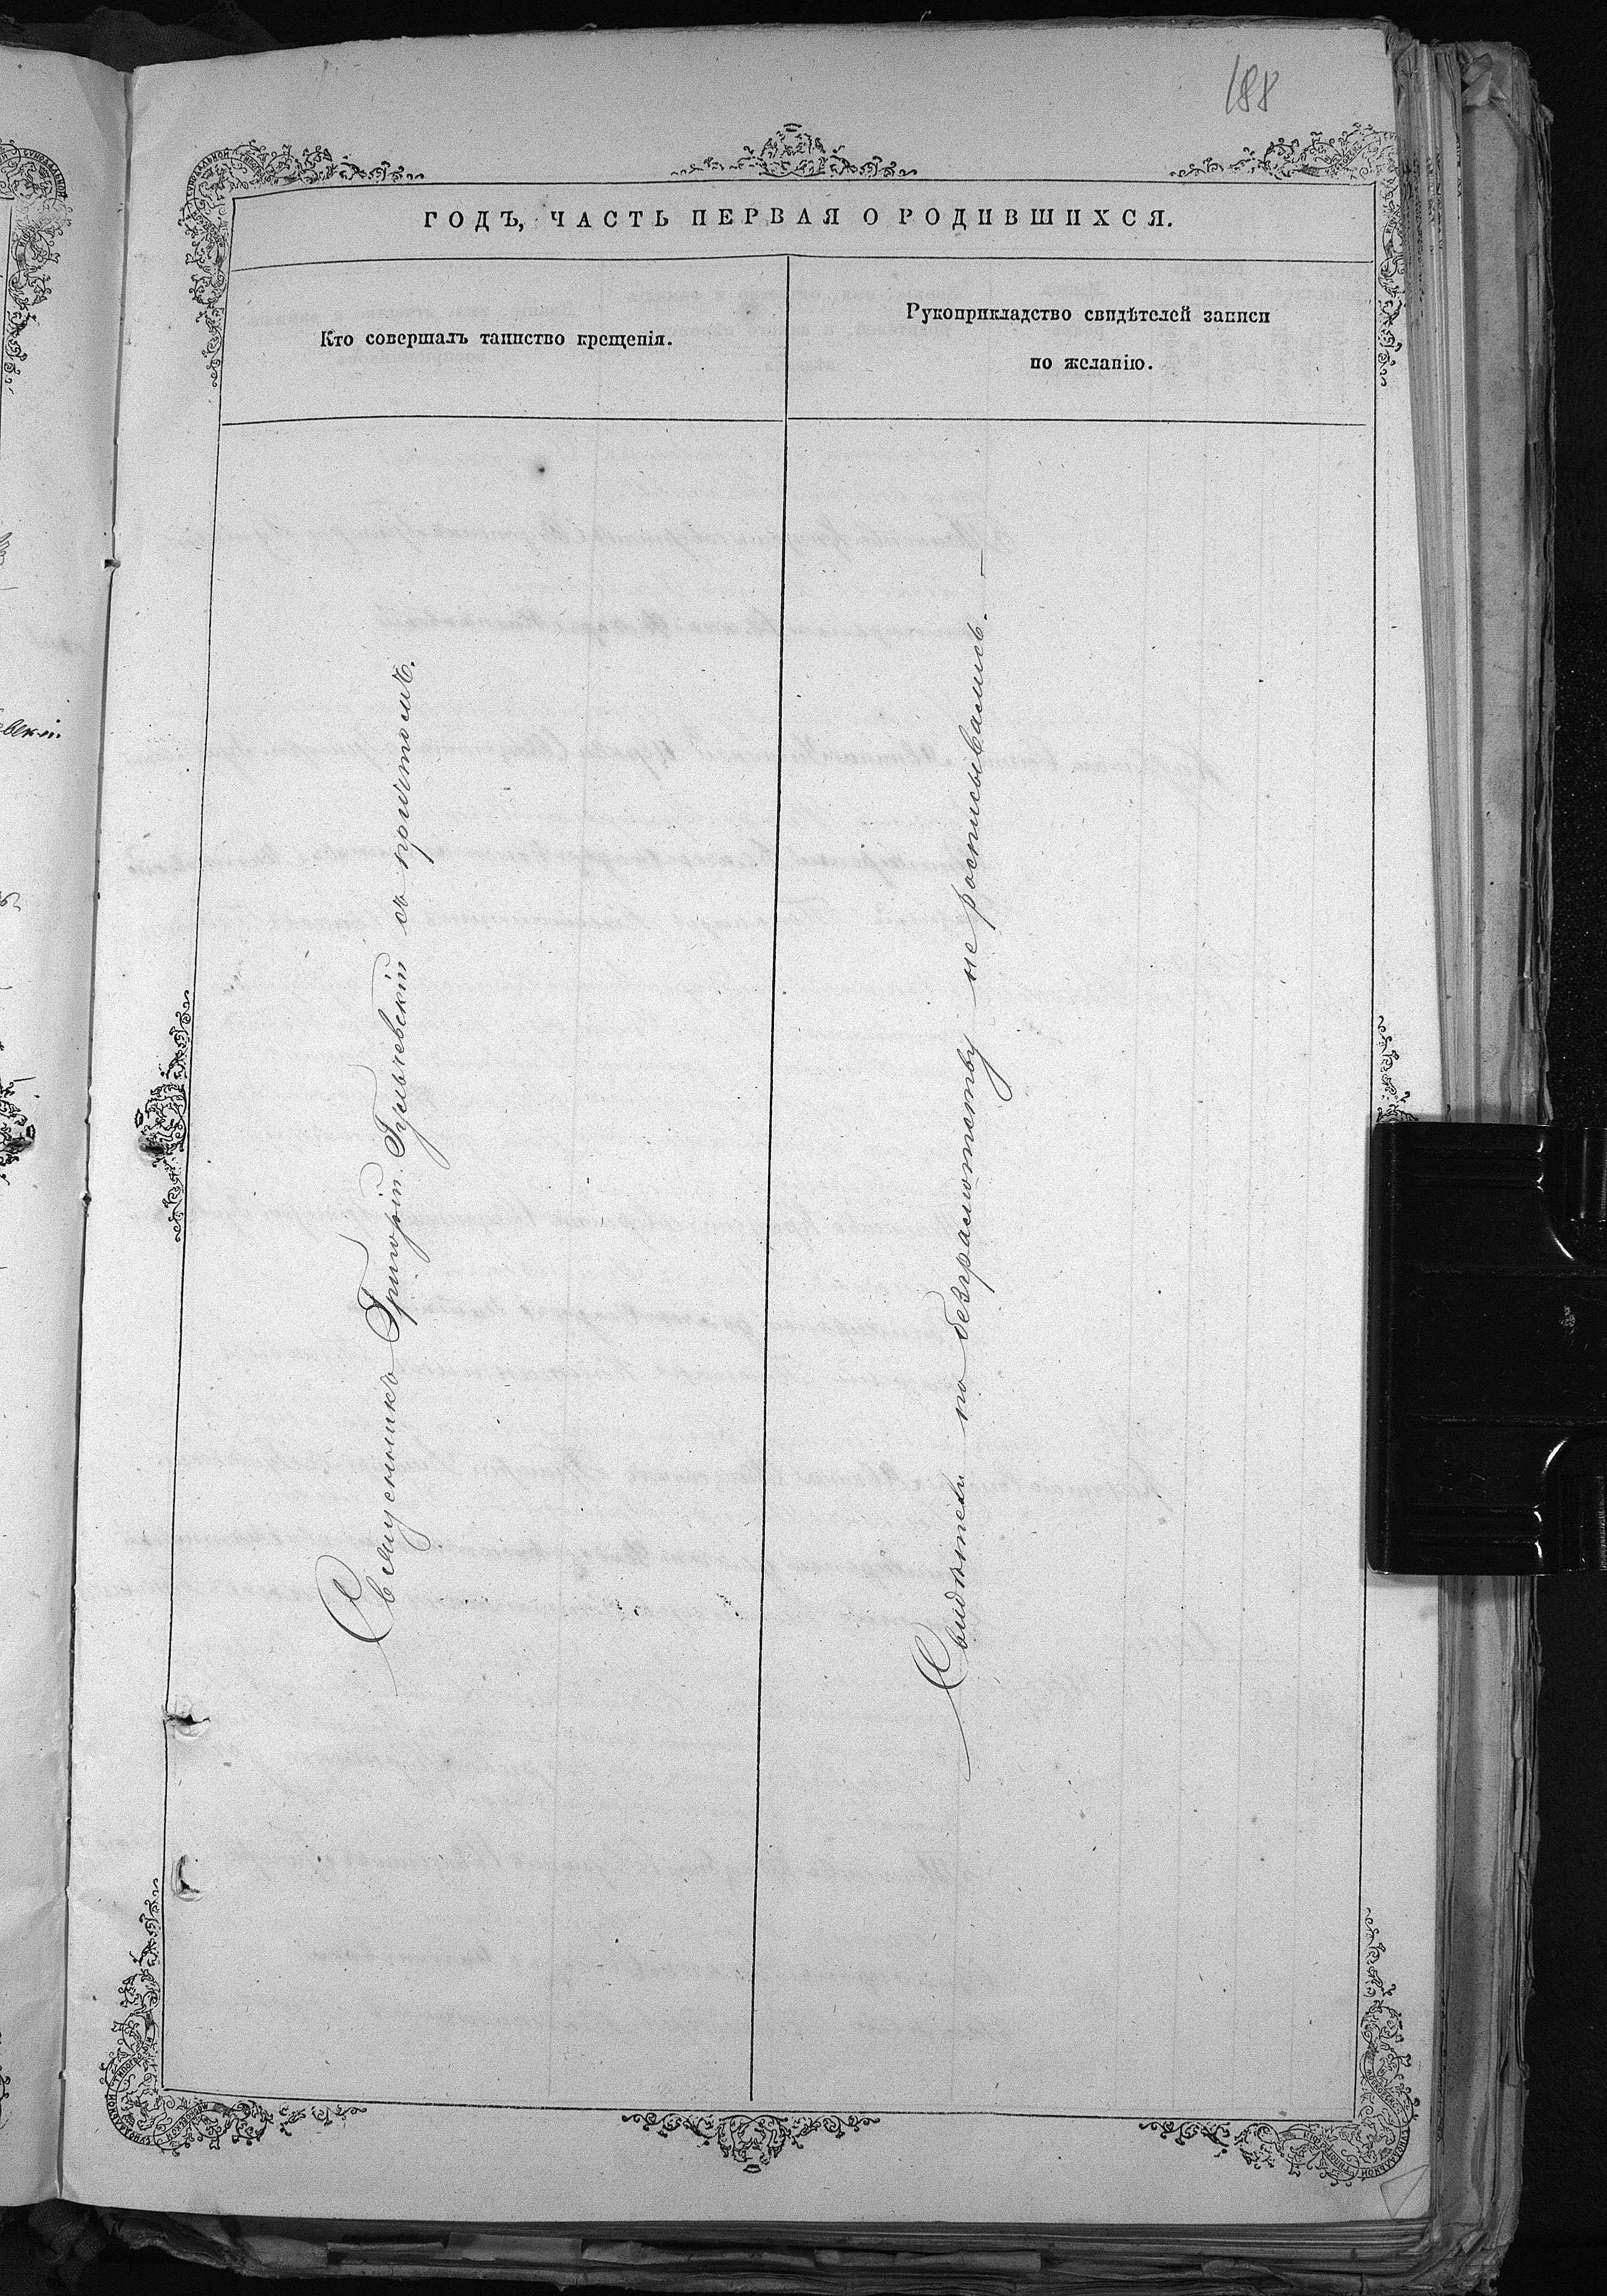 188
ГОДЪ, ЧАСТЬ ПЕРВАЯ О РОДИВШИХСЯ.
Кто совершалъ таинство крещенія.
Рукоприкладство свидѣтелей записи
по желанію.
Священникъ Григорій Гульчевскій съ причтомъ.
Свидѣтели по безграмотству не росписывались.